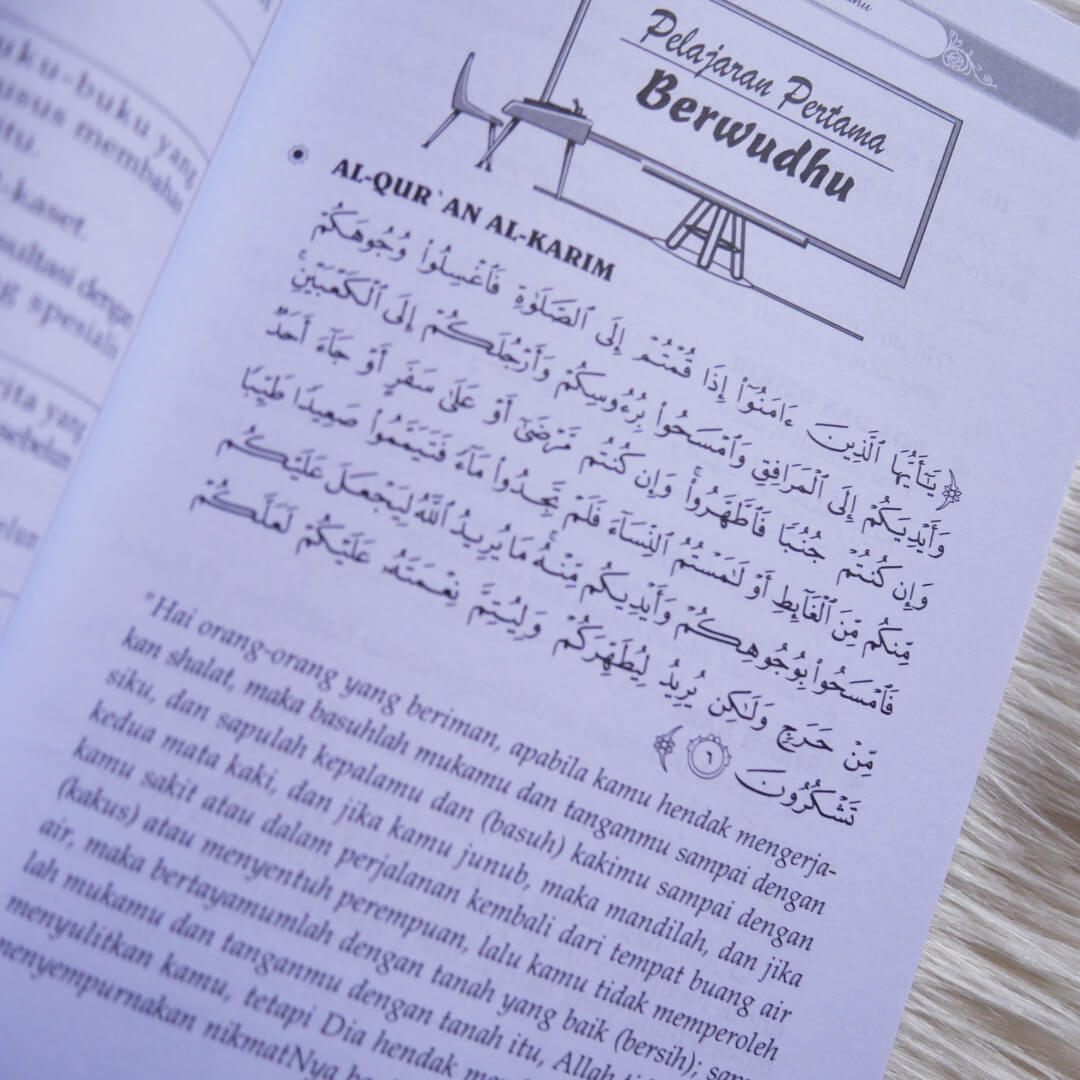 buku-buku yang
khusus membahas
itu.
kaset.
dengan
spesialis
yang
sebelum
Pelajaran Pertama
Berwudhu
AL-QUR`AN AL-KARIM
﴿يَـٰٓأَيُّهَا ٱلَّذِينَ ءَامَنُوٓا۟ إِذَا قُمْتُمْ إِلَى ٱلصَّلَوٰةِ فَٱغْسِلُوا۟ وُجُوهَكُمْ
وَأَيْدِيَكُمْ إِلَى ٱلْمَرَافِقِ وَٱمْسَحُوا۟ بِرُءُوسِكُمْ وَأَرْجُلَكُمْ إِلَى ٱلْكَعْبَيْنِ ۚ
وَإِن كُنتُمْ جُنُبًا فَٱطَّهَّرُوا۟ ۚ وَإِن كُنتُم مَّرْضَىٰٓ أَوْ عَلَىٰ سَفَرٍ أَوْ جَآءَ أَحَدٌ
مِّنكُم مِّنَ ٱلْغَآئِطِ أَوْ لَـٰمَسْتُمُ ٱلنِّسَآءَ فَلَمْ تَجِدُوا۟ مَآءً فَتَيَمَّمُوا۟ صَعِيدًا طَيِّبًا
فَٱمْسَحُوا۟ بِوُجُوهِكُمْ وَأَيْدِيكُم مِّنْهُ ۚ مَا يُرِيدُ ٱللَّهُ لِيَجْعَلَ عَلَيْكُم
مِّنْ حَرَجٍ وَلَـٰكِن يُرِيدُ لِيُطَهِّرَكُمْ وَلِيُتِمَّ نِعْمَتَهُۥ عَلَيْكُمْ لَعَلَّكُمْ
تَشْكُرُونَ ٦﴾
"Hai orang-orang yang beriman, apabila kamu hendak mengerja-
kan shalat, maka basuhlah mukamu dan tanganmu sampai dengan
siku, dan sapulah kepalamu dan (basuh) kakimu sampai dengan
kedua mata kaki, dan jika kamu junub, maka mandilah, dan jika
kamu sakit atau dalam perjalanan kembali dari tempat buang air
(kakus) atau menyentuh perempuan, lalu kamu tidak memperoleh
air, maka bertayamumlah dengan tanah yang baik (bersih);
lah mukamu dan tanganmu dengan tanah itu, Allah
menyulitkan kamu, tetapi Dia hendak
menyempurnakan nikmatNya